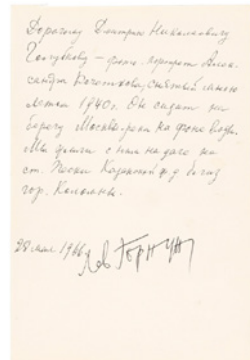 Дорогому Дмитрию Николаевичу
Голубкову — фото-портрет Алек-
сандра Кочеткова, снятый мною
летом 1940 г. Он сидит на
берегу Москвы-реки на фоне воды.
Мы жили с ним на даче на
ст. Пески Казанской ж.д. близ
гор. Коломны.
28 мая 1966 Лев Горнунг